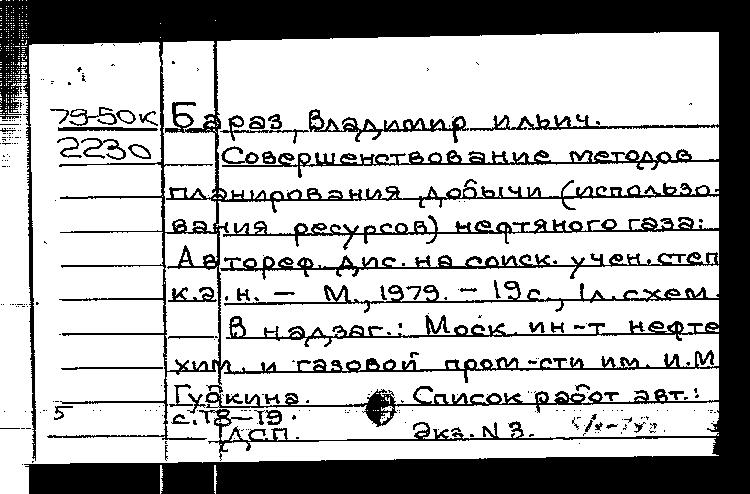 79-50к Бараз, Владимир Ильич.
2230 Совершенствование методов
планирования добычи (использо-
вания ресурсов) нефтяного газа:
Автореф. дис. на соиск. учен. степ
к.э.н. – М., 1979. – 19 с., 1 л. схем.
В надзаг.: Моск. ин-т нефте
хим. и газовой пром-сти им. И.М
Губкина. Список работ авт.:
5 с. 18–19.
ДСП. Экз. N 3.